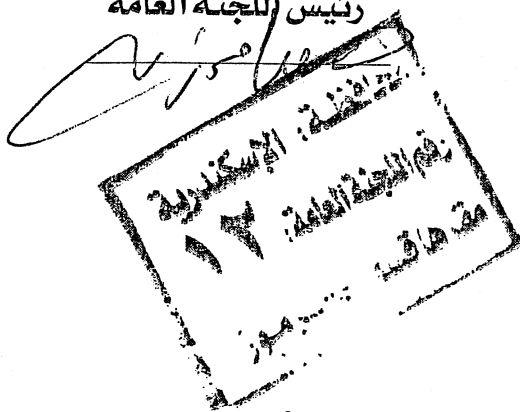 رئيس اللجنة العامة
محافظة: الإسكندرية
رقم اللجنة العامة: ١٣
مقرها قسم